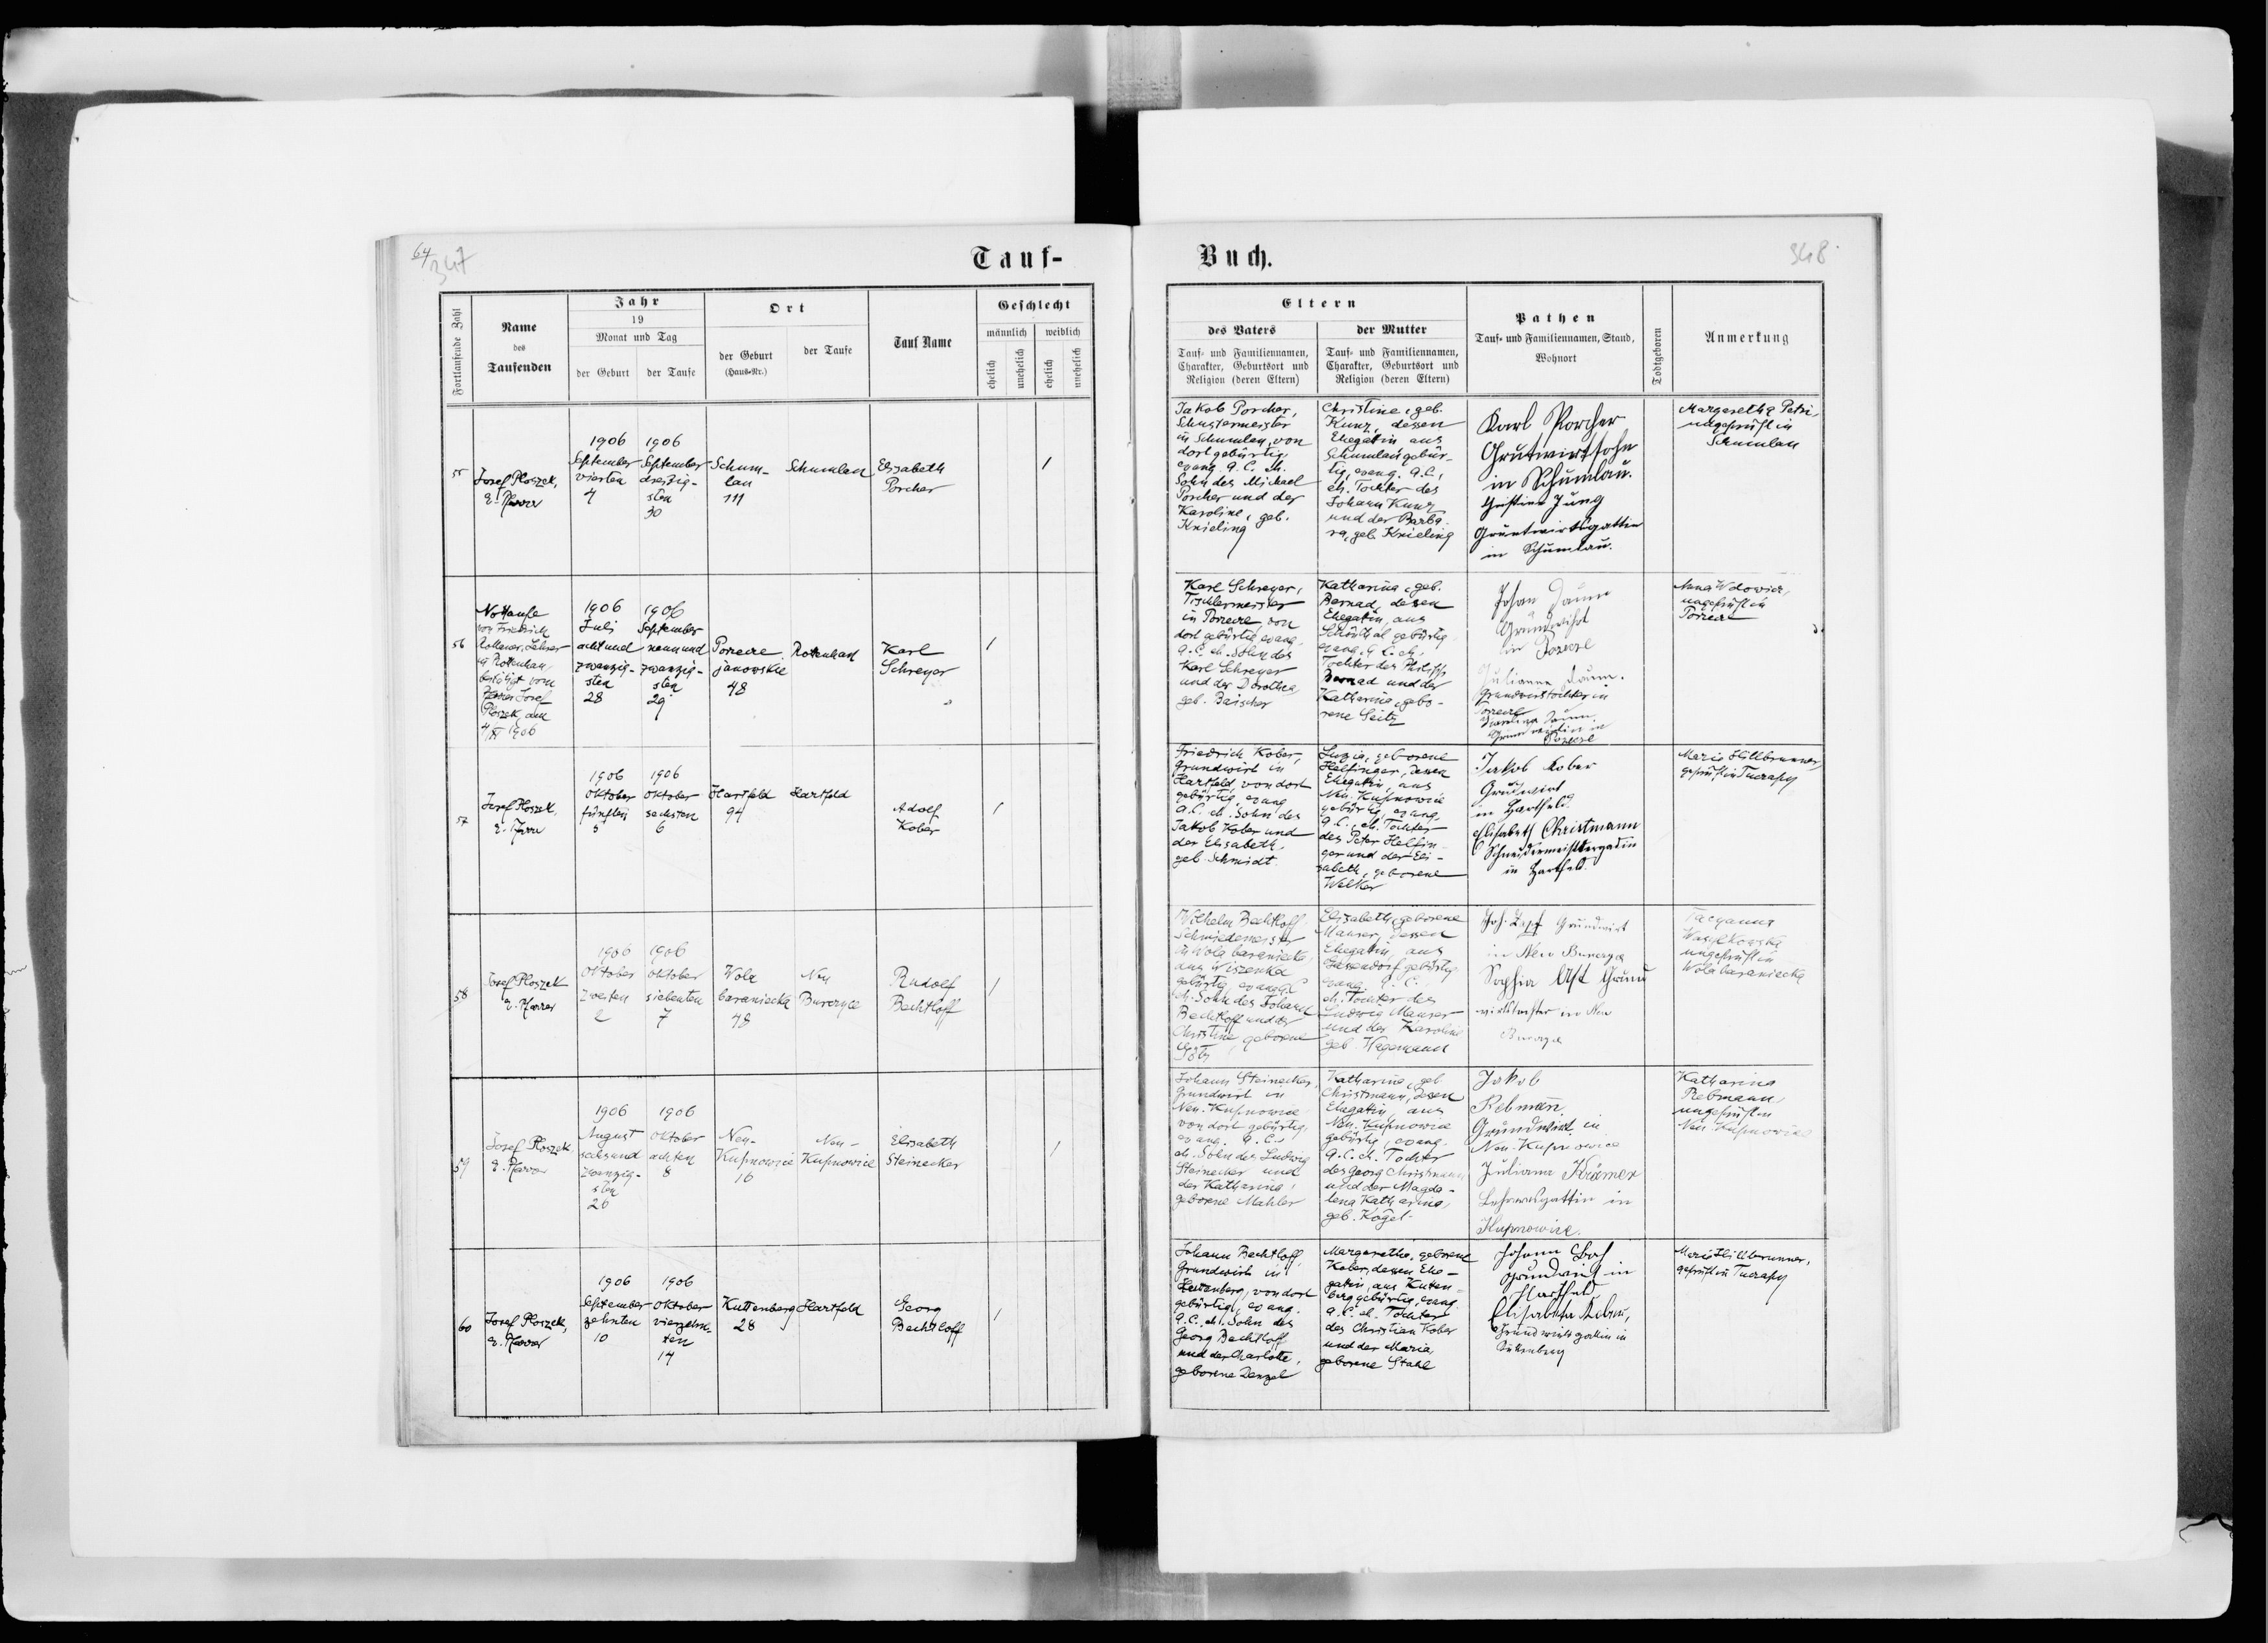 64
347
Tauf-
Fortlaufende Zahl
Name
des
Taufenden
Jahr
19
Monat und Tag
der Geburt
der Taufe
Ort
der Geburt
(Haus-Nr.)
der Taufe
Tauf Name
Geschlecht
männlich
weiblich
ehelich
unehelich
ehelich
unehelich
55
Josef Ploszek,
e. Pfarrer
1906
September
vierten
4
1906
September
dreißig-
sten
30
Schum-
lau
111
Schumlau
Elisabeth
Porcher
1
56
Nottaufe
von Friedrich
Kollauer, Lehrer
in Rottenhan,
bestätigt vom
Pfarrer Josef
Ploszek am
4/XI 1906
1906
Juli
acht und
zwanzig-
sten
28
1906
September
neun und
zwanzig-
sten
29
Porzecze
janowskie
48
Rottenhan
Karl
Schreyer
1
57
Josef Ploszek,
e. Pfarrer
1906
Oktober
fünften
5
1906
Oktober
sechsten
6
Hartfeld
94
Hartfeld
Adolf
Kober
1
58
Josef Ploszek
e. Pfarrer
1906
Oktober
zweiten
2
1906
Oktober
siebenten
7
Wola
baraniecka
48
Neu
Burczyce
Rudolf
Bechtloff
1
59
Josef Ploszek
e. Pfarrer
1906
August
sechsund
zwanzig-
sten
26
1906
Oktober
achten
8
Neu-
Kupnowice
16
Neu-
Kupnowice
Elisabeth
Steinecker
1
60
Josef Ploszek,
e. Pfarrer
1906
September
zehnten
10
1906
Oktober
vierzehn-
ten
14
Kuttenberg
28
Hartfeld
Georg
Bechtloff
1
Buch.
348
Eltern
des Vaters
Tauf- und Familiennamen,
Charakter, Geburtsort und
Religion (deren Eltern)
der Mutter
Tauf- und Familiennamen,
Charakter, Geburtsort und
Religion (deren Eltern)
Pathen
Tauf- und Familiennamen, Stand,
Wohnort
Todtgeboren
Anmerkung
Jakob Porcher,
Schustermeister
in Schumlau, von
dort gebürtig,
evang. A.C. eh.
Sohn des Michael
Porcher und der
Karoline, geb.
Knieling
Christine, geb.
Kunz, dessen
Ehegattin aus
Schumlau gebür-
tig, evang. A.C.,
eh. Tochter des
Johann Kunz
und der Barba-
ra, geb. Knieling
Karl Porcher
Grundwirtssohn
in Schumlau.
Christine Jung
Grundwirtsgattin
in Schumlau.
Margaretha Petri,
ungeprüft in
Schumlau
Karl Schreyer,
Tischlermeister
in Porzecze, von
dort gebürtig evang.
A.C. eh. Sohn des
Karl Schreyer
und der Dorothea
geb. Baischer
Katharina, geb.
Bernad, dessen
Ehegattin, aus
Schönthal gebürtig,
evang. A.C. eh.
Tochter des Philipp
Bernad und der
Katharina, gebo-
rene Seitz
Johan Daum
Grundwirt
in Porzecze
Julianna Daum.
Grundwirtstochter in
Porzecze
Daum
Grundwirtin in
Porzecze
Anna Wdowicz,
ungeprüft in
Porzecze
Friedrich Kober,
Grundwirt in
Hartfeld, von dort
gebürtig, evang.
A.C. eh. Sohn des
Jakob Kober und
der Elisabeth,
geb. Schmidt.
Luzia, geborene
Helfinger, dessen
Ehegattin, aus
Neu-Kupnowice
gebürtig, evang.
A.C., eh. Tochter
des Peter Helfin-
ger und der Eli-
sabeth, geborene
Welker
Jakob Kober
Grundwirt
in Hartfeld
Elisabeth Christmann
Schneidermeistersgattin
in Hartfeld.
Marie Hillbrunner,
geprüft in Tuczapy
Wilhelm Bechtloff
Schmiedemeister
in Wola baraniecka,
aus Wiszenka
gebürtig evang. A.C.
eh. Sohn des Johann
Bechtloff und der
Christine, geborene
Götz
Elisabeth, geborene
Manser, dessen
Ehegattin, aus
gebürtig
evang. A.C.
eh. Tochter des
Ludwig Manser
und der Karoline
geb. Wagemann
Joh. Zopf Grundwirt
in Neu Burczyce
Sophia Ast Grund
wirtstochter in Neu
Burczyce
Tacyanna
Wasylkowska
ungeprüft in
Wola baraniecka
Johann Steinecker,
Grundwirt in
Neu-Kupnowice
von dort gebürtig,
evang. A.C.,
eh. Sohn des Ludwig
Steinecker und
der Katharina,
geborene Mahler
Katharina, geb.
Christmann, dessen
Ehegattin, aus
Neu-Kupnowice
gebürtig, evang.
A.C. eh. Tochter
des Georg Christmann
und der Magda-
lena Katharina,
geb. Kogel-
Jakob
Rebmann
Grundwirt in
Neu-Kupnowice
Juliana Krämer
Lehrersgattin in
Kupnowice.
Katharina
Rebmann,
ungeprüft in
Neu-Kupnowice
Johann Bechtloff,
Grundwirt in
Kuttenberg, von dort
gebürtig, evang.
A.C., eh. Sohn des
Georg Bechtloff
und der Charlotte,
geborene Denzel
Margarethe, geborene
Kober, dessen Ehe-
gattin, aus Kuten-
berg gebürtig, evang.
A.C. eh. Tochter
des Christian Kober
und der Maria,
geborene Stahl
Johann
Grundwirt in
Hartfeld
Elisabetha Kober,
Grundwirts gattin in
Kuttenberg
Marie Hillbrunner,
geprüft in Tuczapy